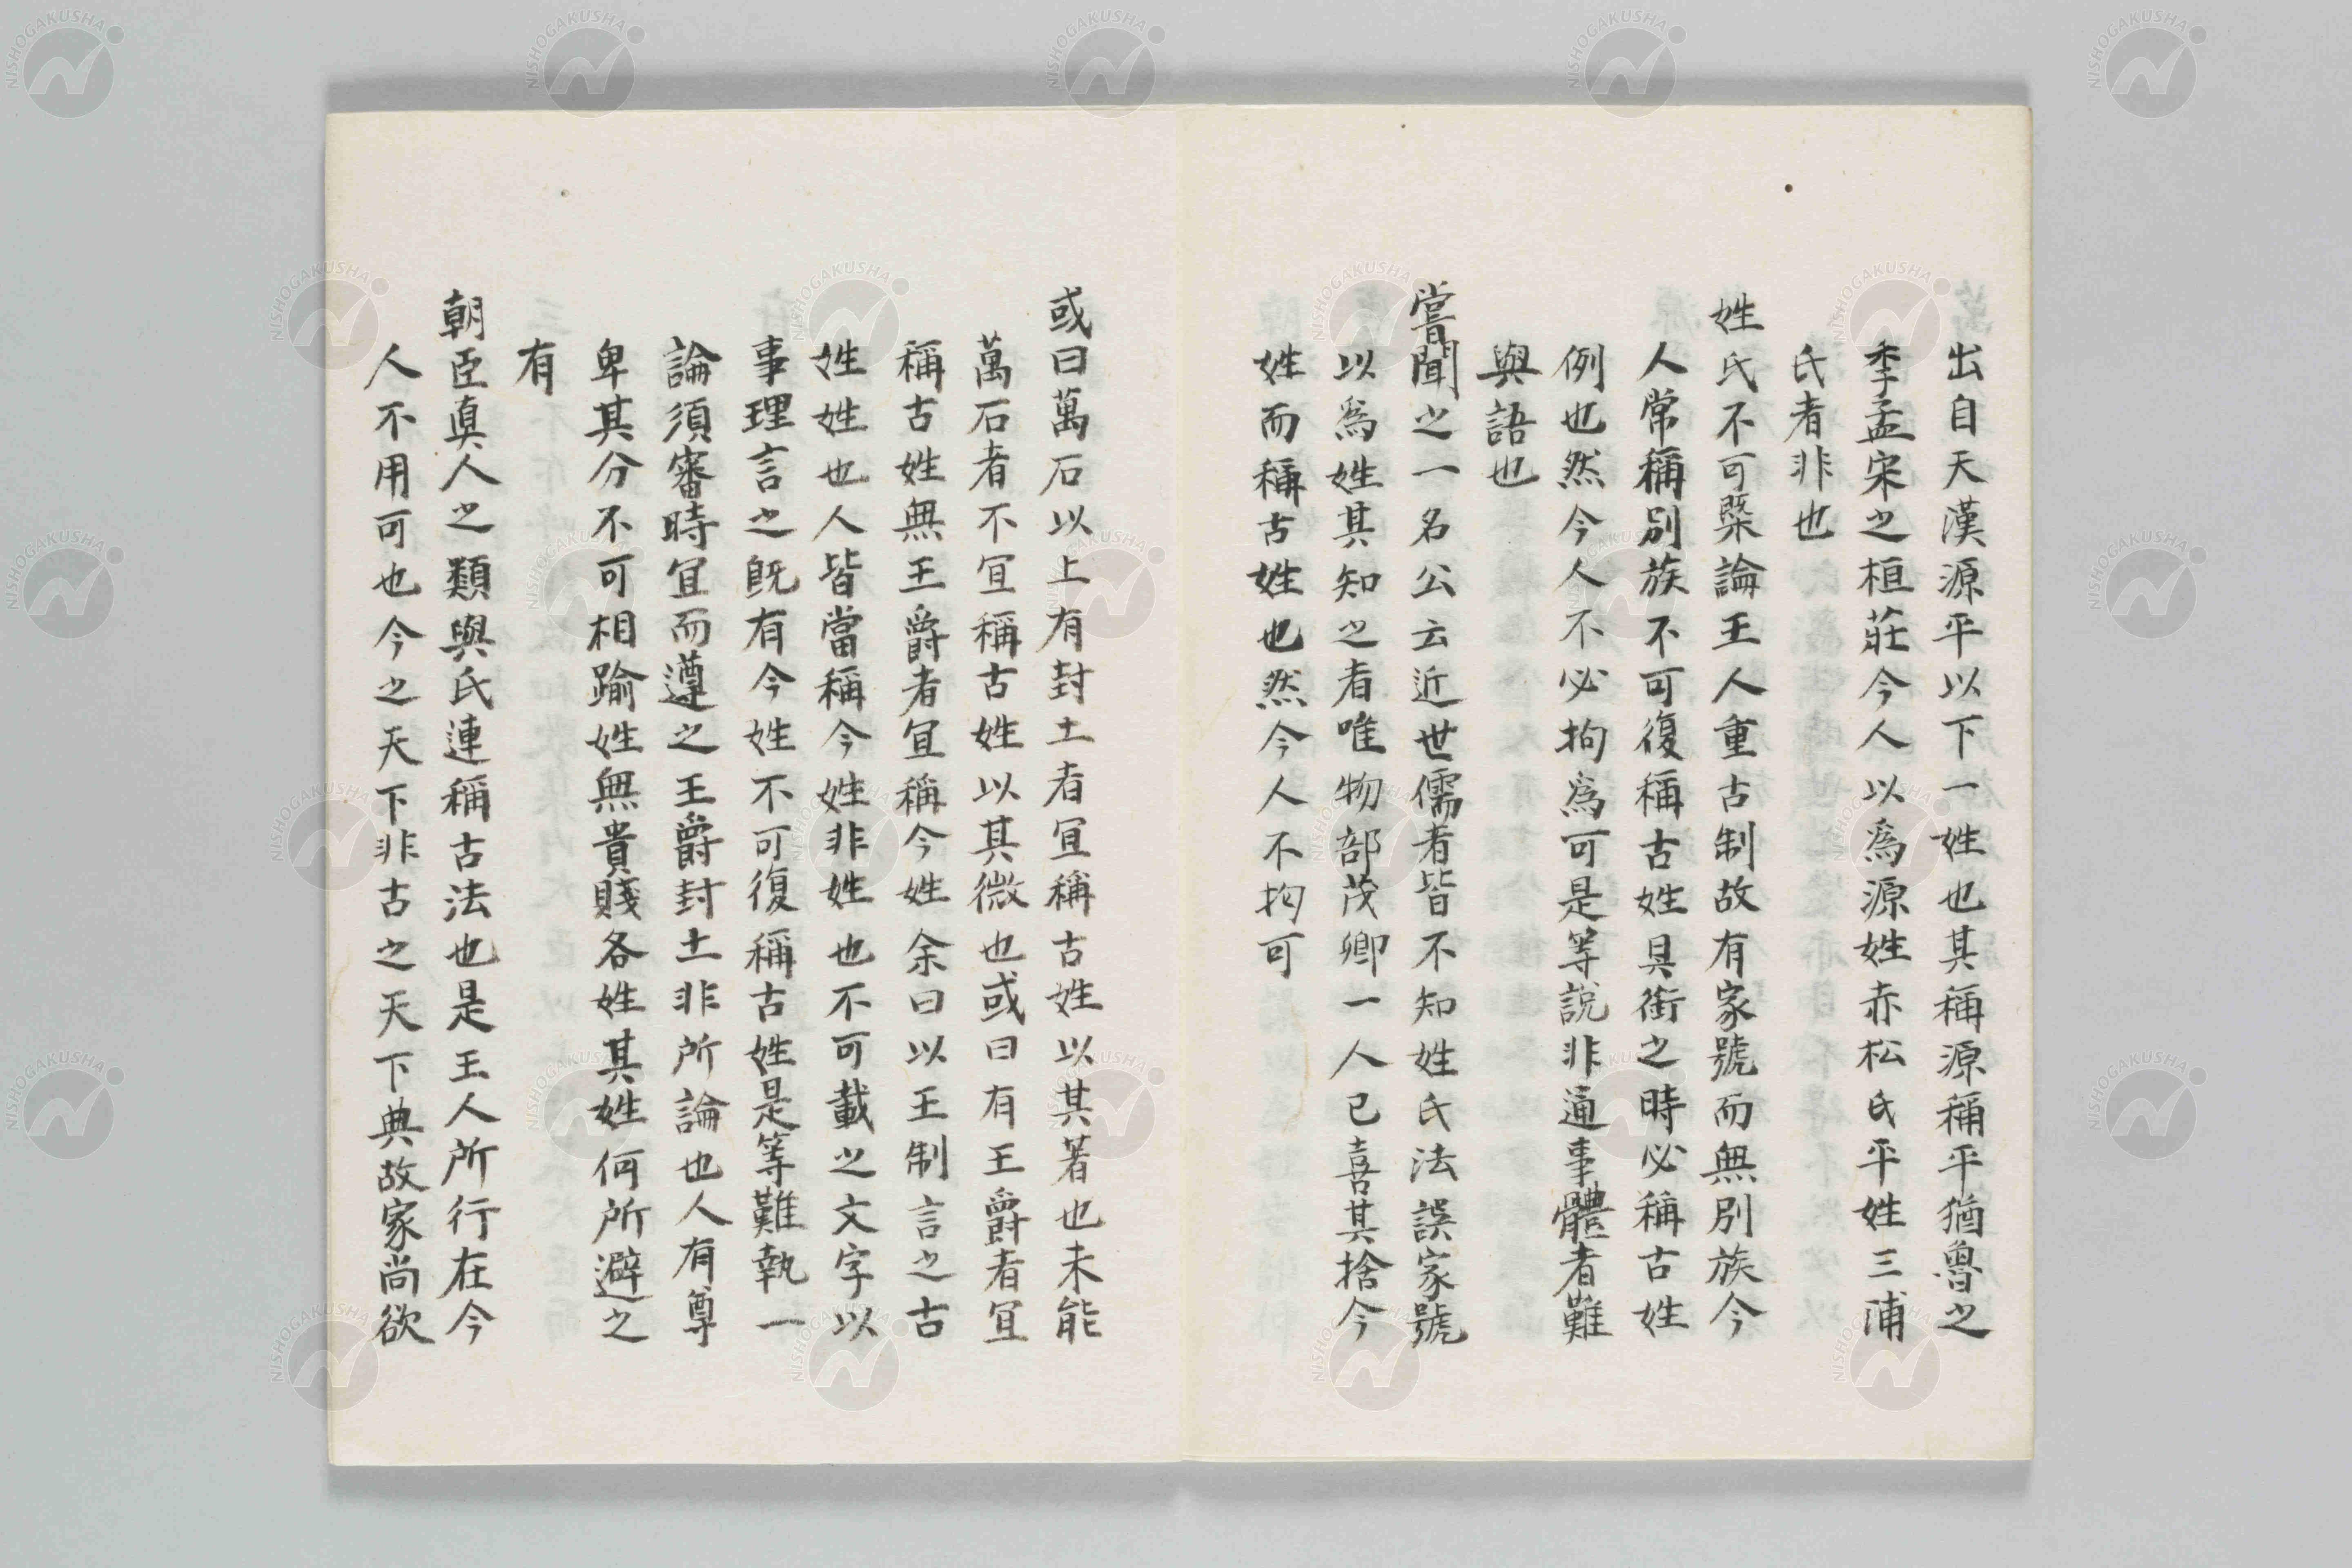 出自天漢源平以下一姓也其稱源稱平猶魯之
季孟宋之桓莊今人以爲源姓赤松氏平姓三浦
氏者非也
姓氏不可槩論王人重古制故有家號而無別族今
人常稱別族不可復稱古姓具銜之時必稱古姓
例也然今人不必拘爲可是等説非通事體者難
與語也
嘗聞之一名公云近世儒者皆不知姓氏法誤家號
以爲姓其知之者唯物部茂卿一人已喜其捨今
姓而稱古姓也然今人不拘可
或曰萬石以上有封土者宜稱古姓以其著也未能
萬石者不宜稱古姓以其微也或曰有王爵者宜
稱古姓無王爵者宜稱今姓余曰以王制言之古
姓姓也人皆當稱今姓非姓也不可載之文字以
事理言之既有今姓不可復稱古姓是等難執一
論須審時宜而遵之王爵封土非所論也人有尊
卑其分不可相踰姓無貴賤各姓其姓何所避之
有
朝臣眞人之類與氏連稱古法也是王人所行在今
人不用可也今之天下非古之天下典故家尚欲
NISHOGAKUSHA